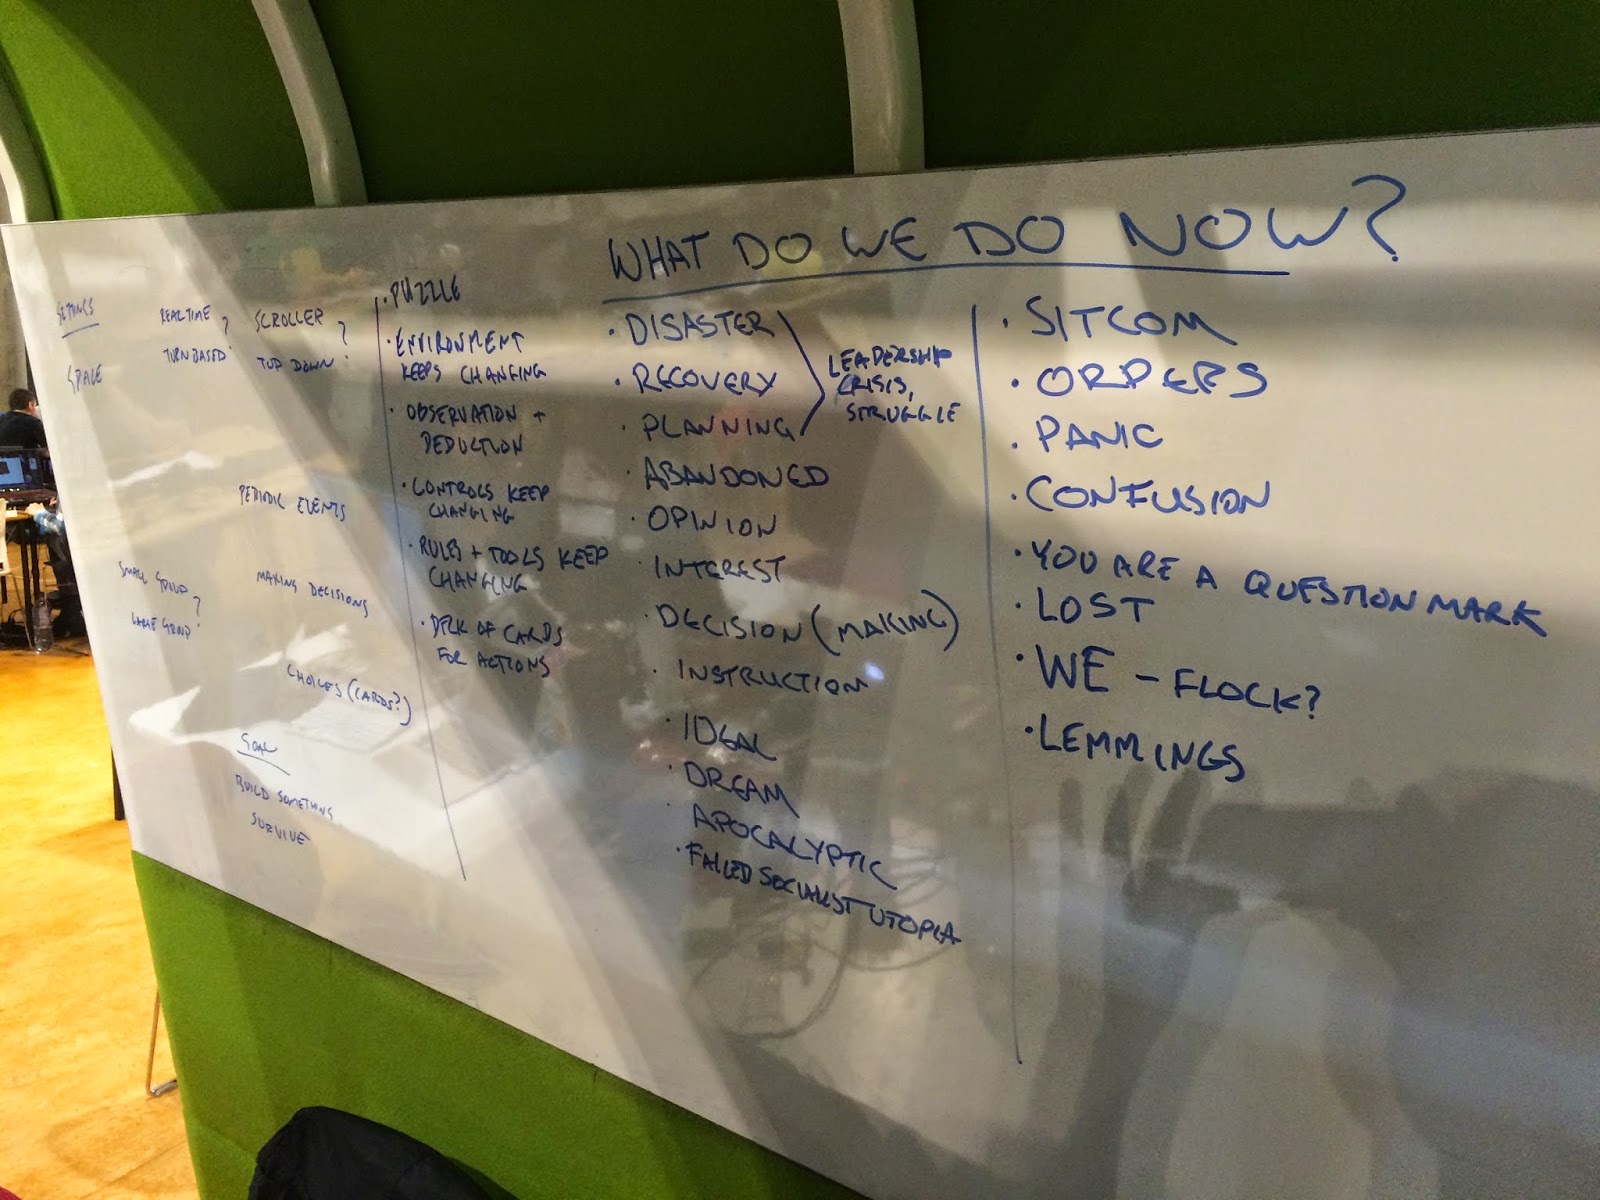 WHAT DO WE DO NOW?
SETTINGS
SPACE
REALTIME
TURNBASED?
SCROLLER
TOP DOWN?
PERIODIC EVENTS
SMALL GROUP
LARGE GROUP?
MAKING DECISIONS
CHOICES (CARDS?)
GOAL
BUILD SOMETHING
SURVIVE
· PUZZLE
· ENVIRONMENT
KEEPS CHANGING
· OBSERVATION +
DEDUCTION
· CONTROLS KEEP
CHANGING
· RULES + TOOLS KEEP
CHANGING
· DECK OF CARDS
FOR ACTIONS
· DISASTER
· RECOVERY
· PLANNING
LEADERSHIP
CRISIS,
STRUGGLE
· ABANDONED
· OPINION
· INTEREST
· DECISION (MAKING)
· INSTRUCTION
· IDEAL
· DREAM
· APOCALYPTIC
· FAILED SOCIALIST UTOPIA
· SITCOM
· ORPERS
· PANIC
· CONFUSION
· YOU ARE A QUESTION MARK
· LOST
· WE - FLOCK?
· LEMMINGS